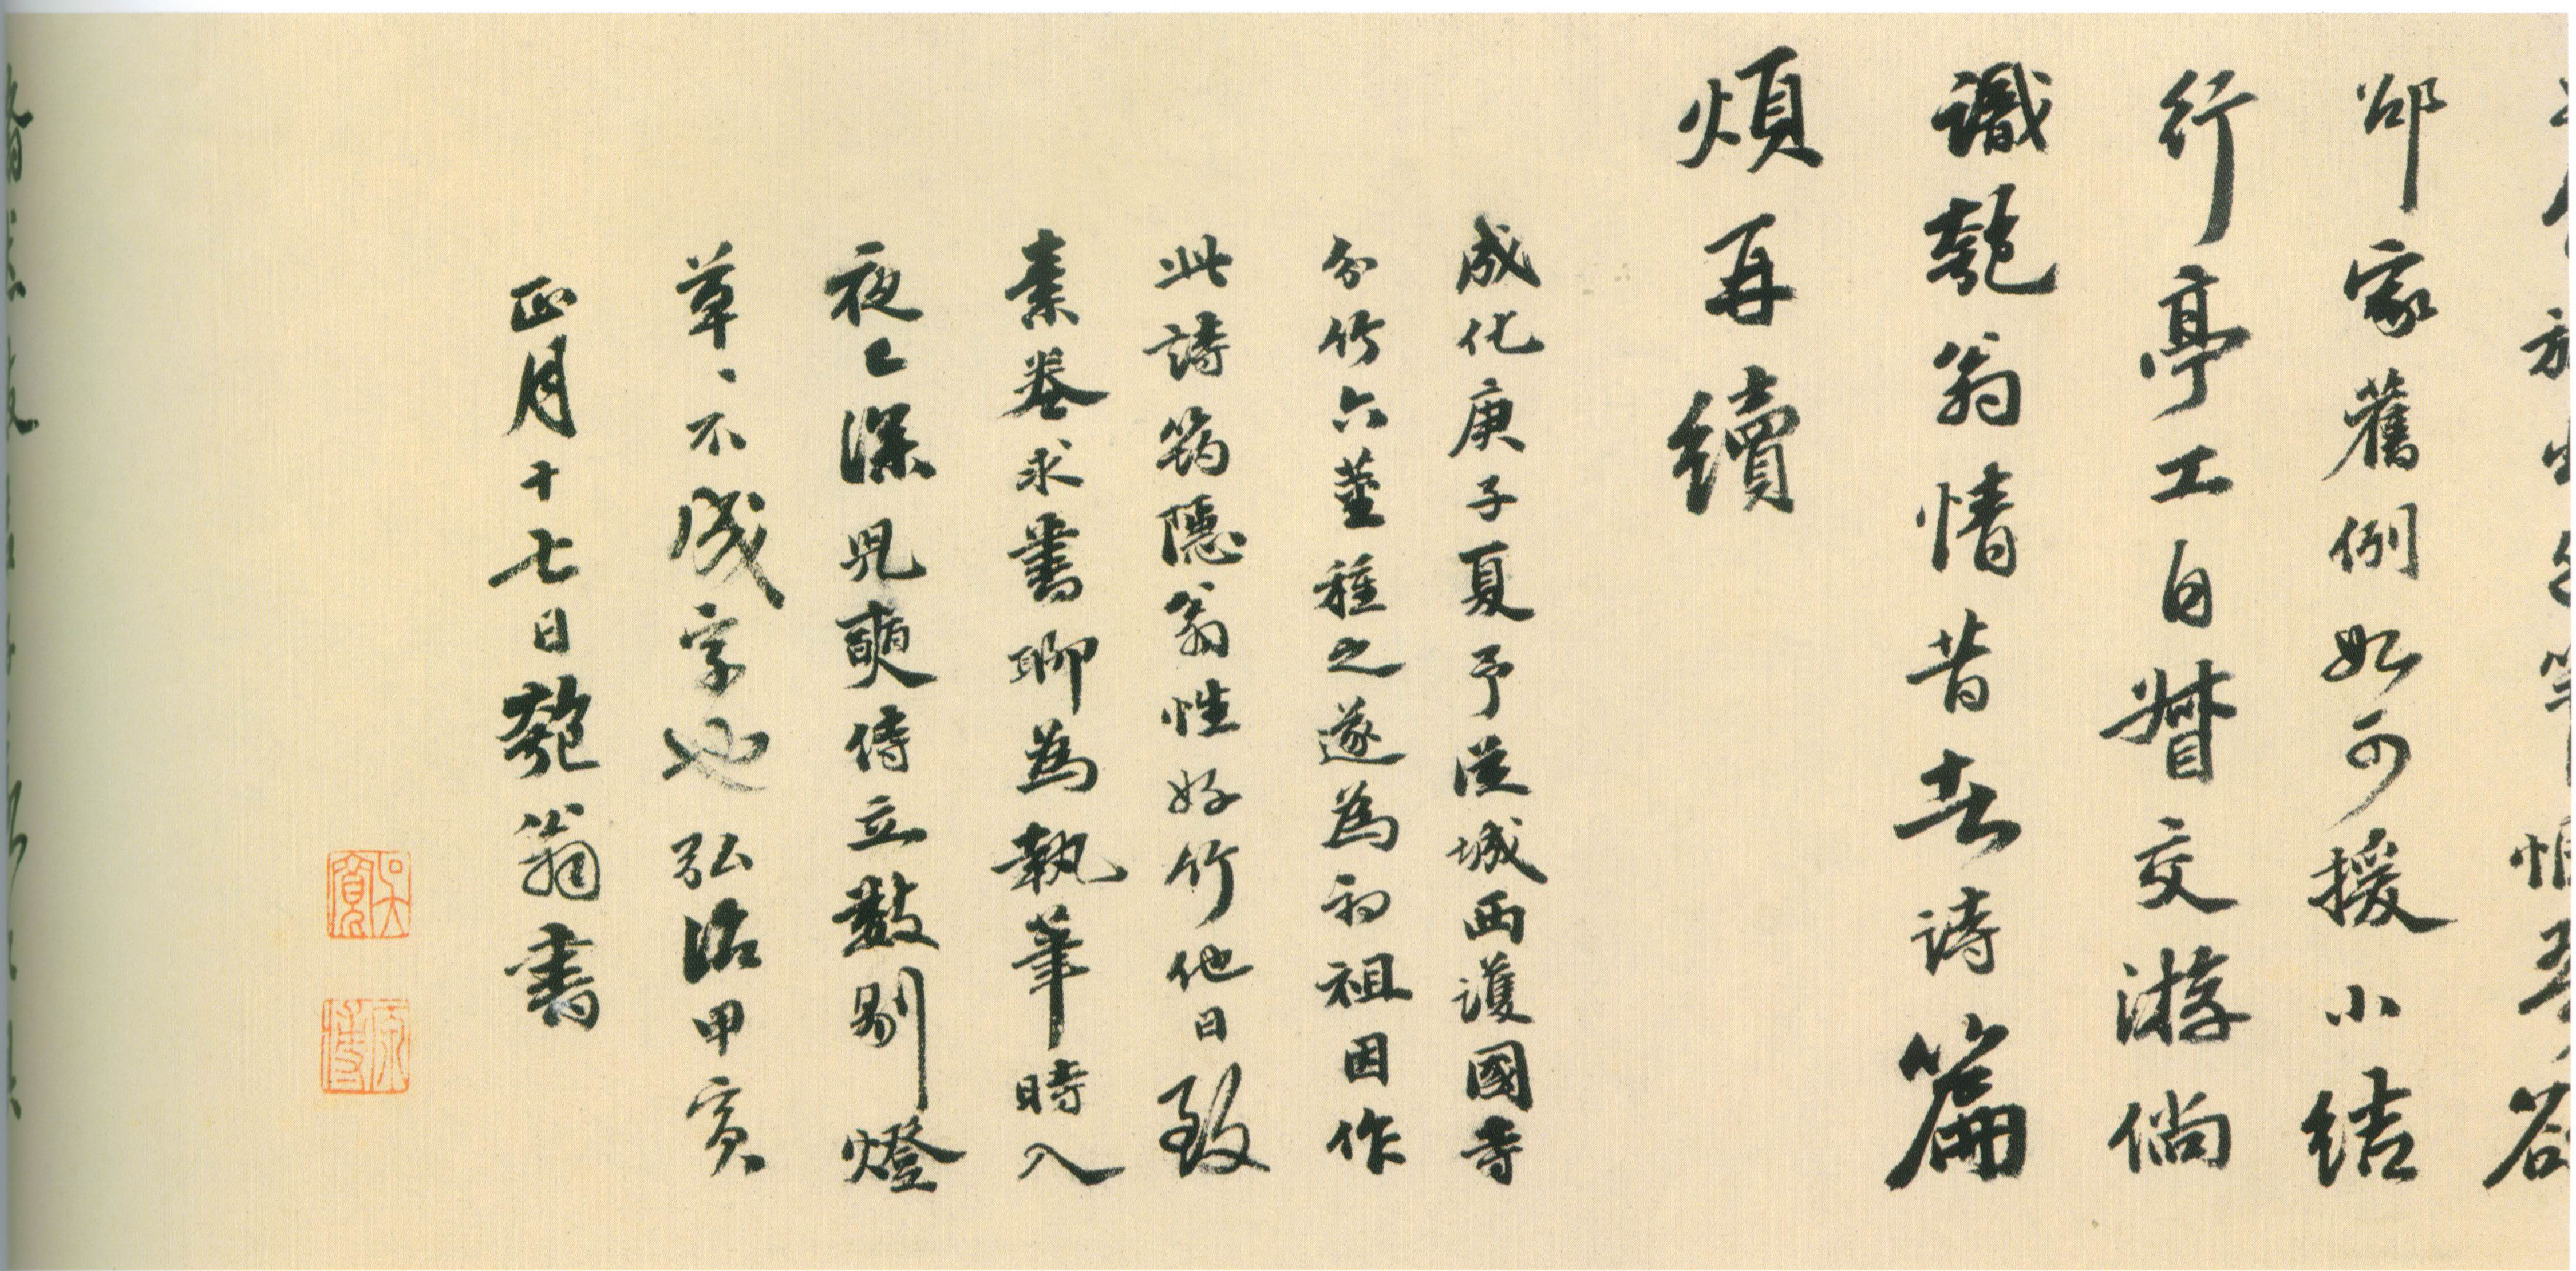 邵家舊例如可援小結
行亭工自督交游倘
識匏翁情昔者詩篇
煩再續
成化庚子夏予從城西護國寺
分竹六莖種之遂為初祖因作
此詩筠隱翁性好竹他日致
素卷求書聊為執筆時入
夜已深兒奭侍立數剔燈
草、不成字也弘治甲寅
正月十七日匏翁書
吳寬
原博